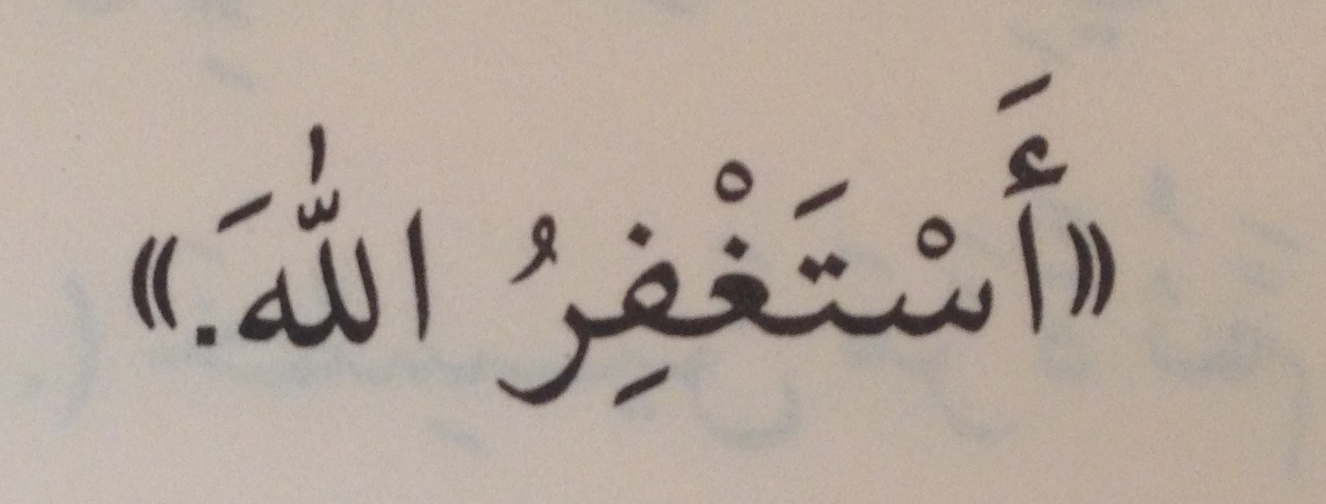 «أَسْتَغْفِرُ اللّٰهَ.»